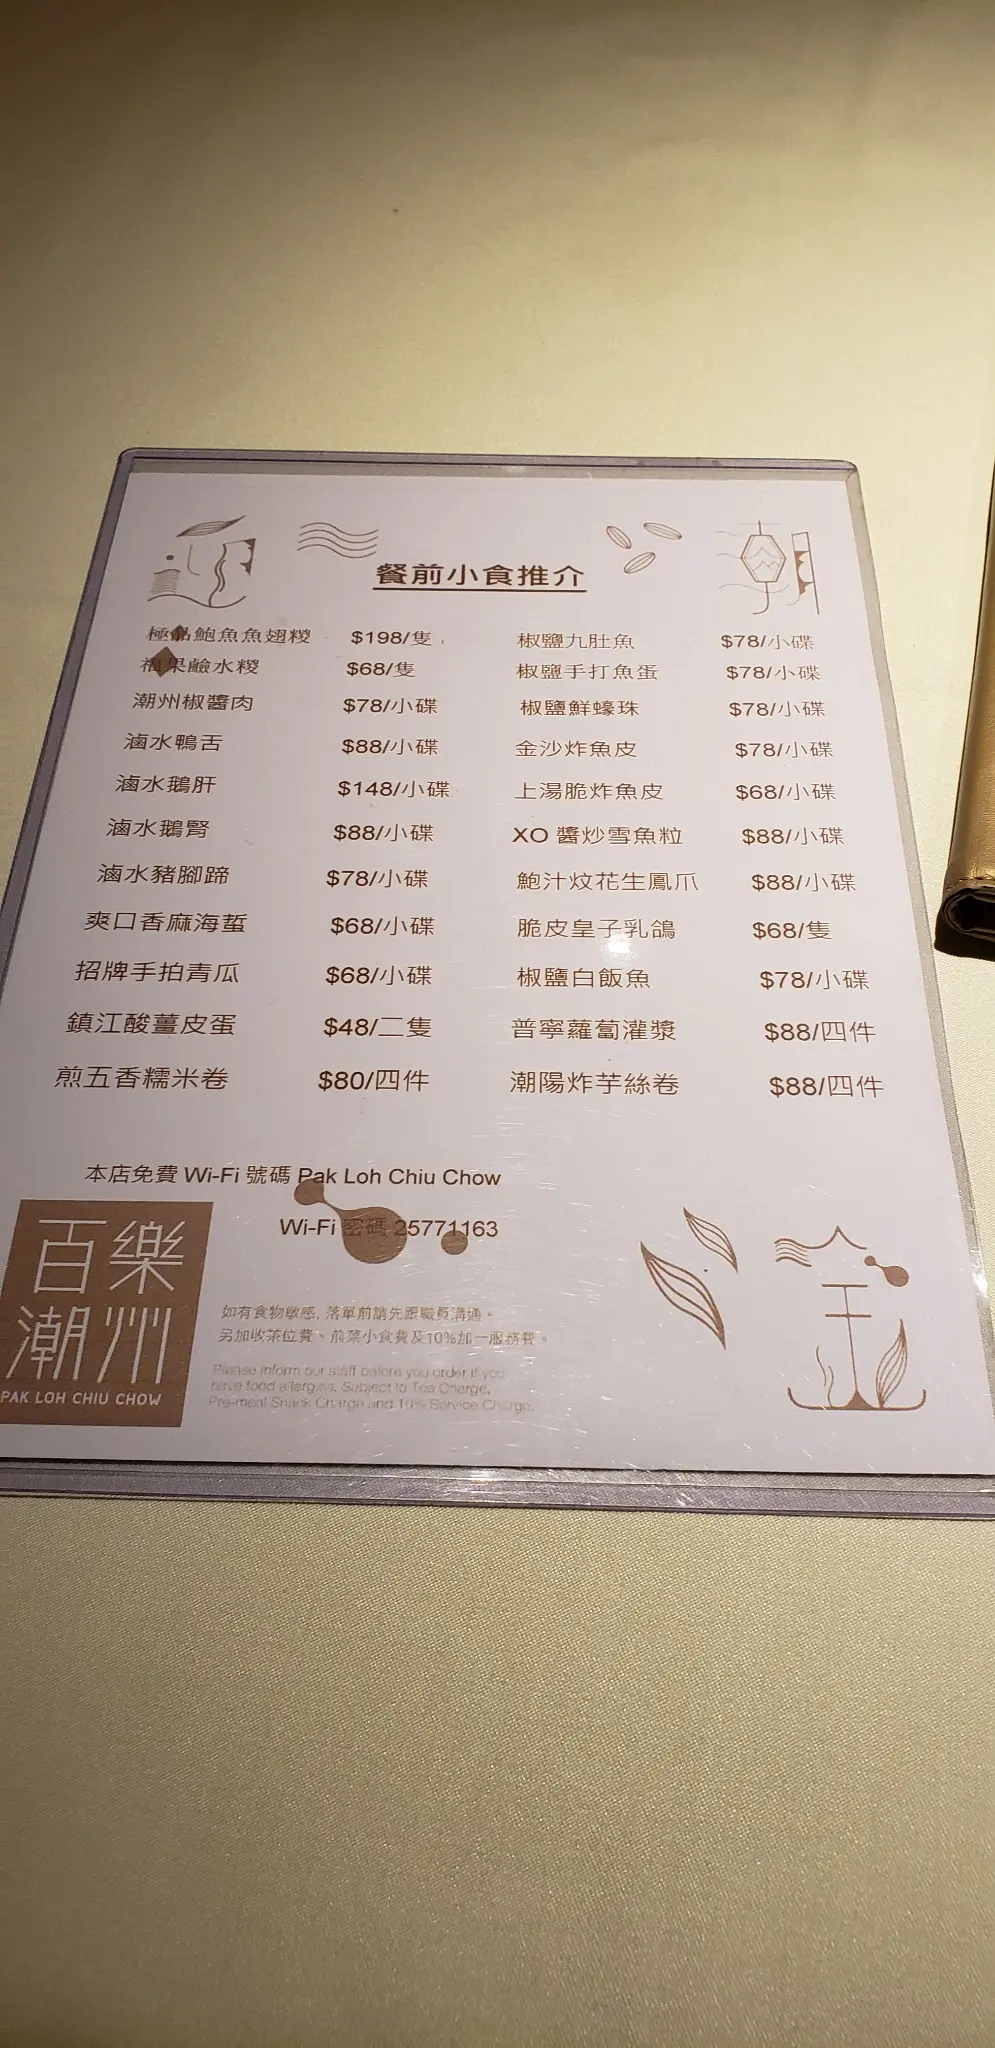 餐前小食推介
極品鮑魚魚翅糉 $198/隻
果鹼水糉 $68/隻
潮州椒醬肉 $78/小碟
滷水鴨舌 $88/小碟
滷水鵝肝 $148/小碟
滷水鵝腎 $88/小碟
滷水豬腳蹄 $78/小碟
爽口香麻海蜇 $68/小碟
招牌手拍青瓜 $68/小碟
鎮江酸薑皮蛋 $48/二隻
煎五香糯米卷 $80/四件
椒鹽九肚魚 $78/小碟
椒鹽手打魚蛋 $78/小碟
椒鹽鮮蠔珠 $78/小碟
金沙炸魚皮 $78/小碟
上湯脆炸魚皮 $68/小碟
XO 醬炒雪魚粒 $88/小碟
鮑汁炆花生鳳爪 $88/小碟
脆皮皇子乳鴿 $68/隻
椒鹽白飯魚 $78/小碟
普寧蘿蔔灌漿 $88/四件
潮陽炸芋絲卷 $88/四件
本店免費 Wi-Fi 號碼 Pak Loh Chiu Chow
Wi-Fi 密碼 25771163
百樂
潮州
PAK LOH CHIU CHOW
如有食物敏感, 落單前請先跟職員溝通。
另加收茶位費、前菜小食費及10%加一服務費。
Please inform our staff before you order if you
have food allergies. Subject to Tea Charge,
Pre-meal Snack Charge and 10% Service Charge.